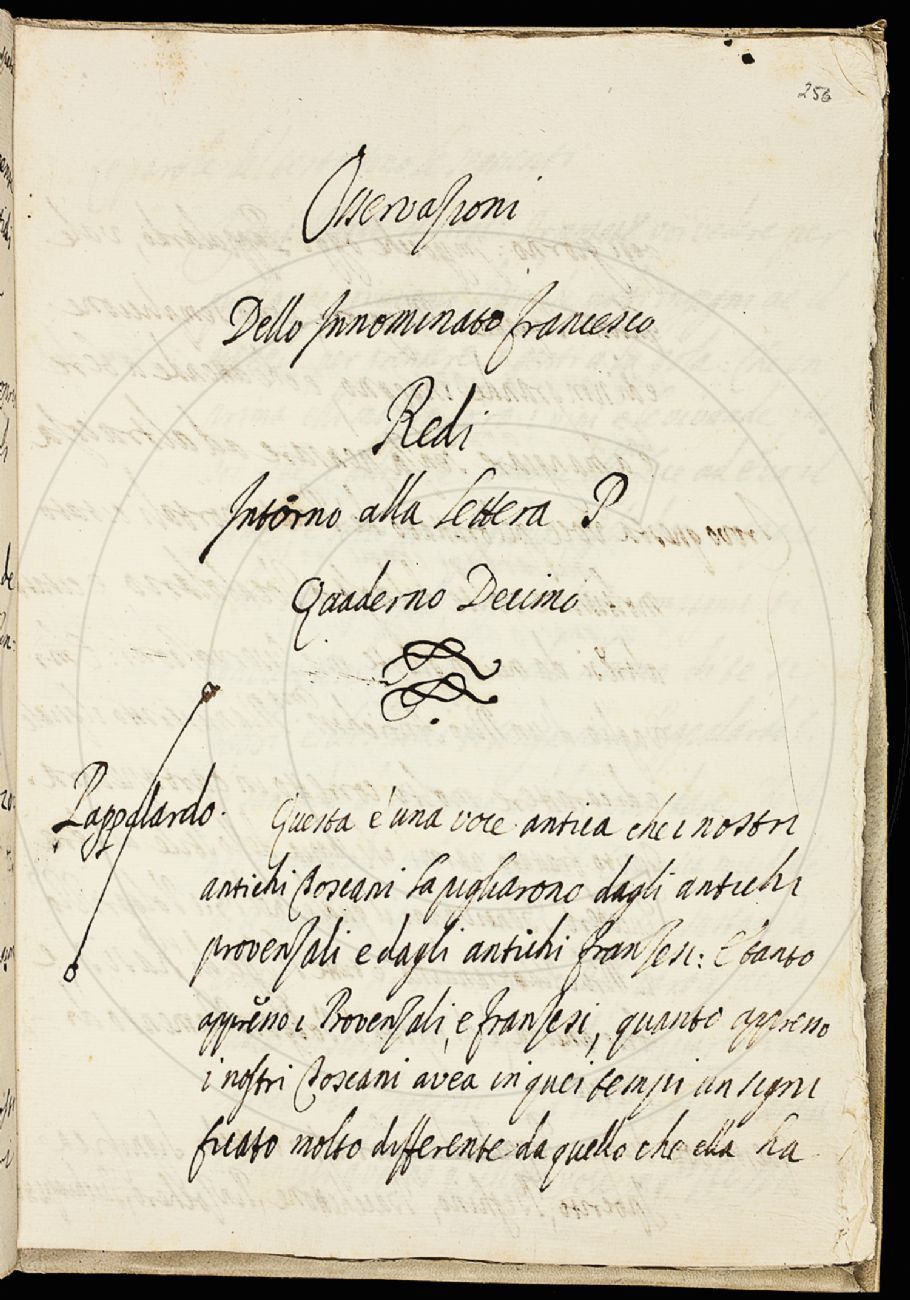 256
Osservazioni
Dello Innominato Francesco
Redi
Intorno alla Lettera P
Quaderno Decimo
Pappalardo. Questa è una voce antica che i nostri
antichi Toscani la pigliarono dagli antichi
provenzali e dagli antichi franzesi: E tanto
appreño i Provenzali, e franzesi, quanto appreno
i nostri Toscani avea in quei tempi un signi
ficato molto differente da quello che ella ha